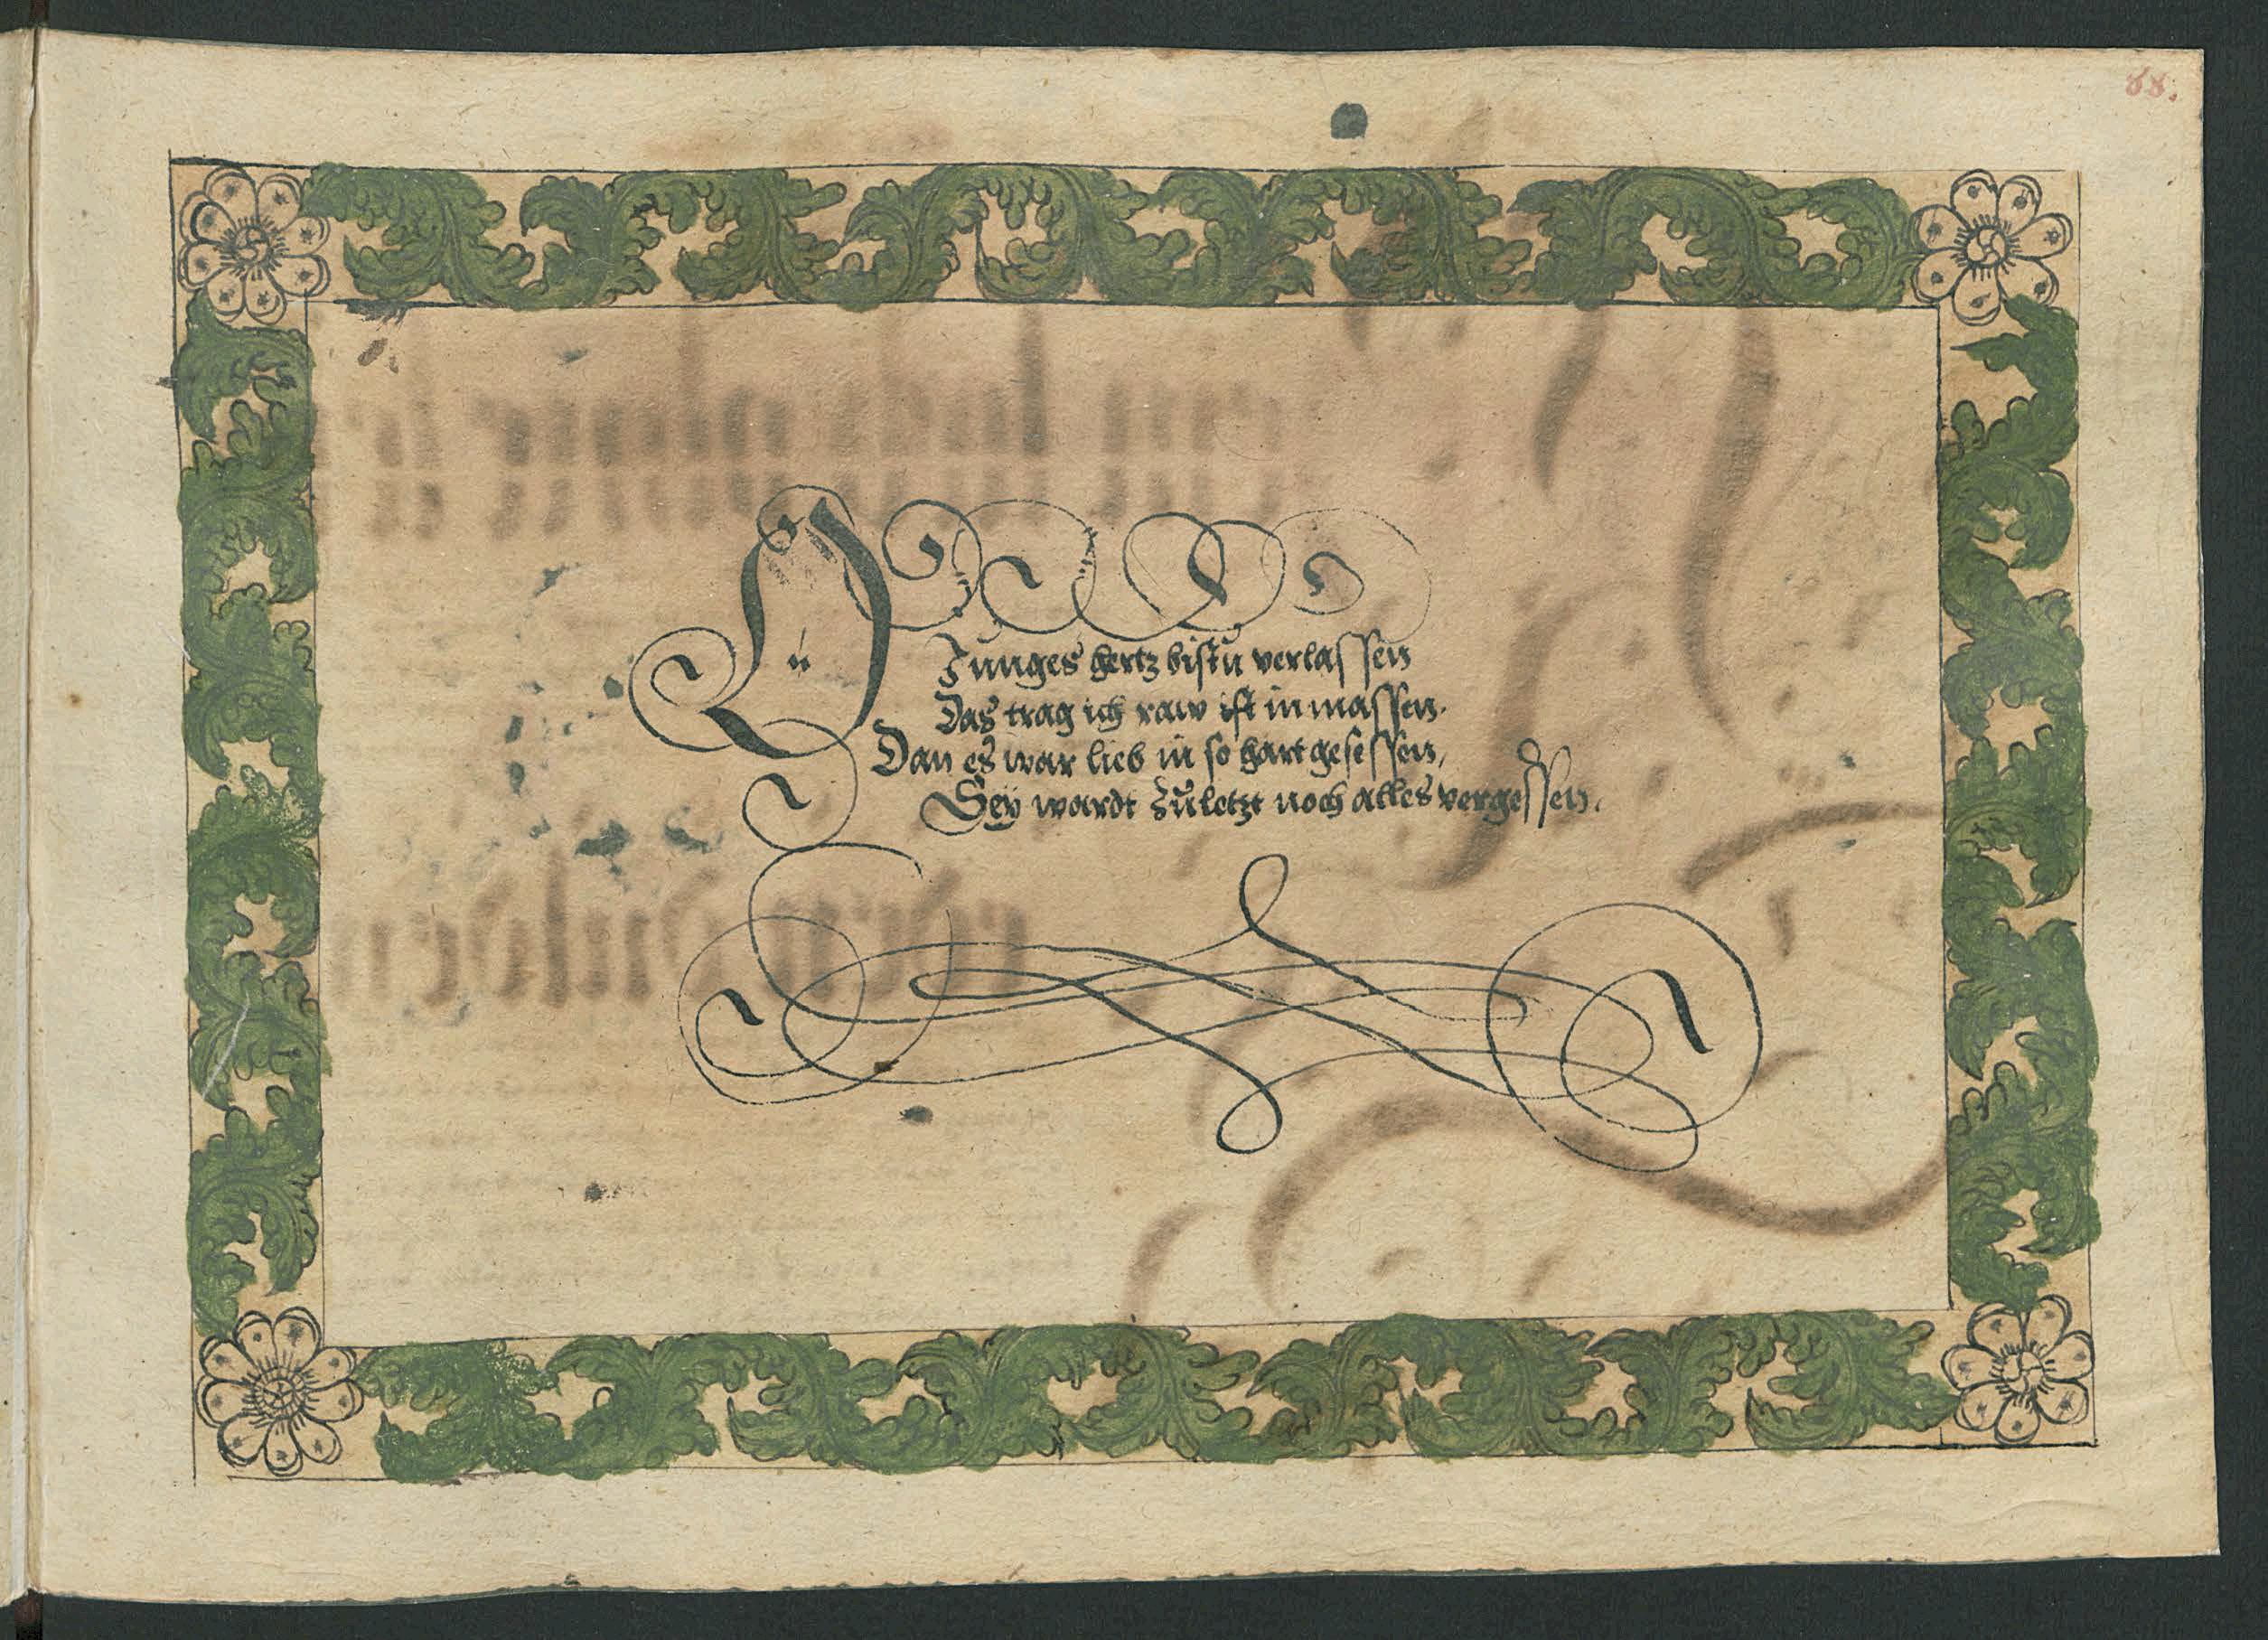 88.
Dú
Junges hertz bistŭ verlassen
Das trag ich raw ist in massen.
Dan es war lieb in so hart gesessen,
Sey wardt zŭletzt noch alles vergessen.